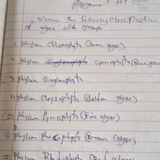 Discuss the following classification
of algae with example
1. phylum Chlorophyta (Green algae)
2. phylum Cyanophyta (Blue green
3. phylum Euglenophyta
4. phylum Chrysophyta (Golden algae)
5. phylum Pyrrophyta (Fire algae)
6. phylum Phaeophyta (Brown algae)
7. Phylum Rhodophyta (Red algae